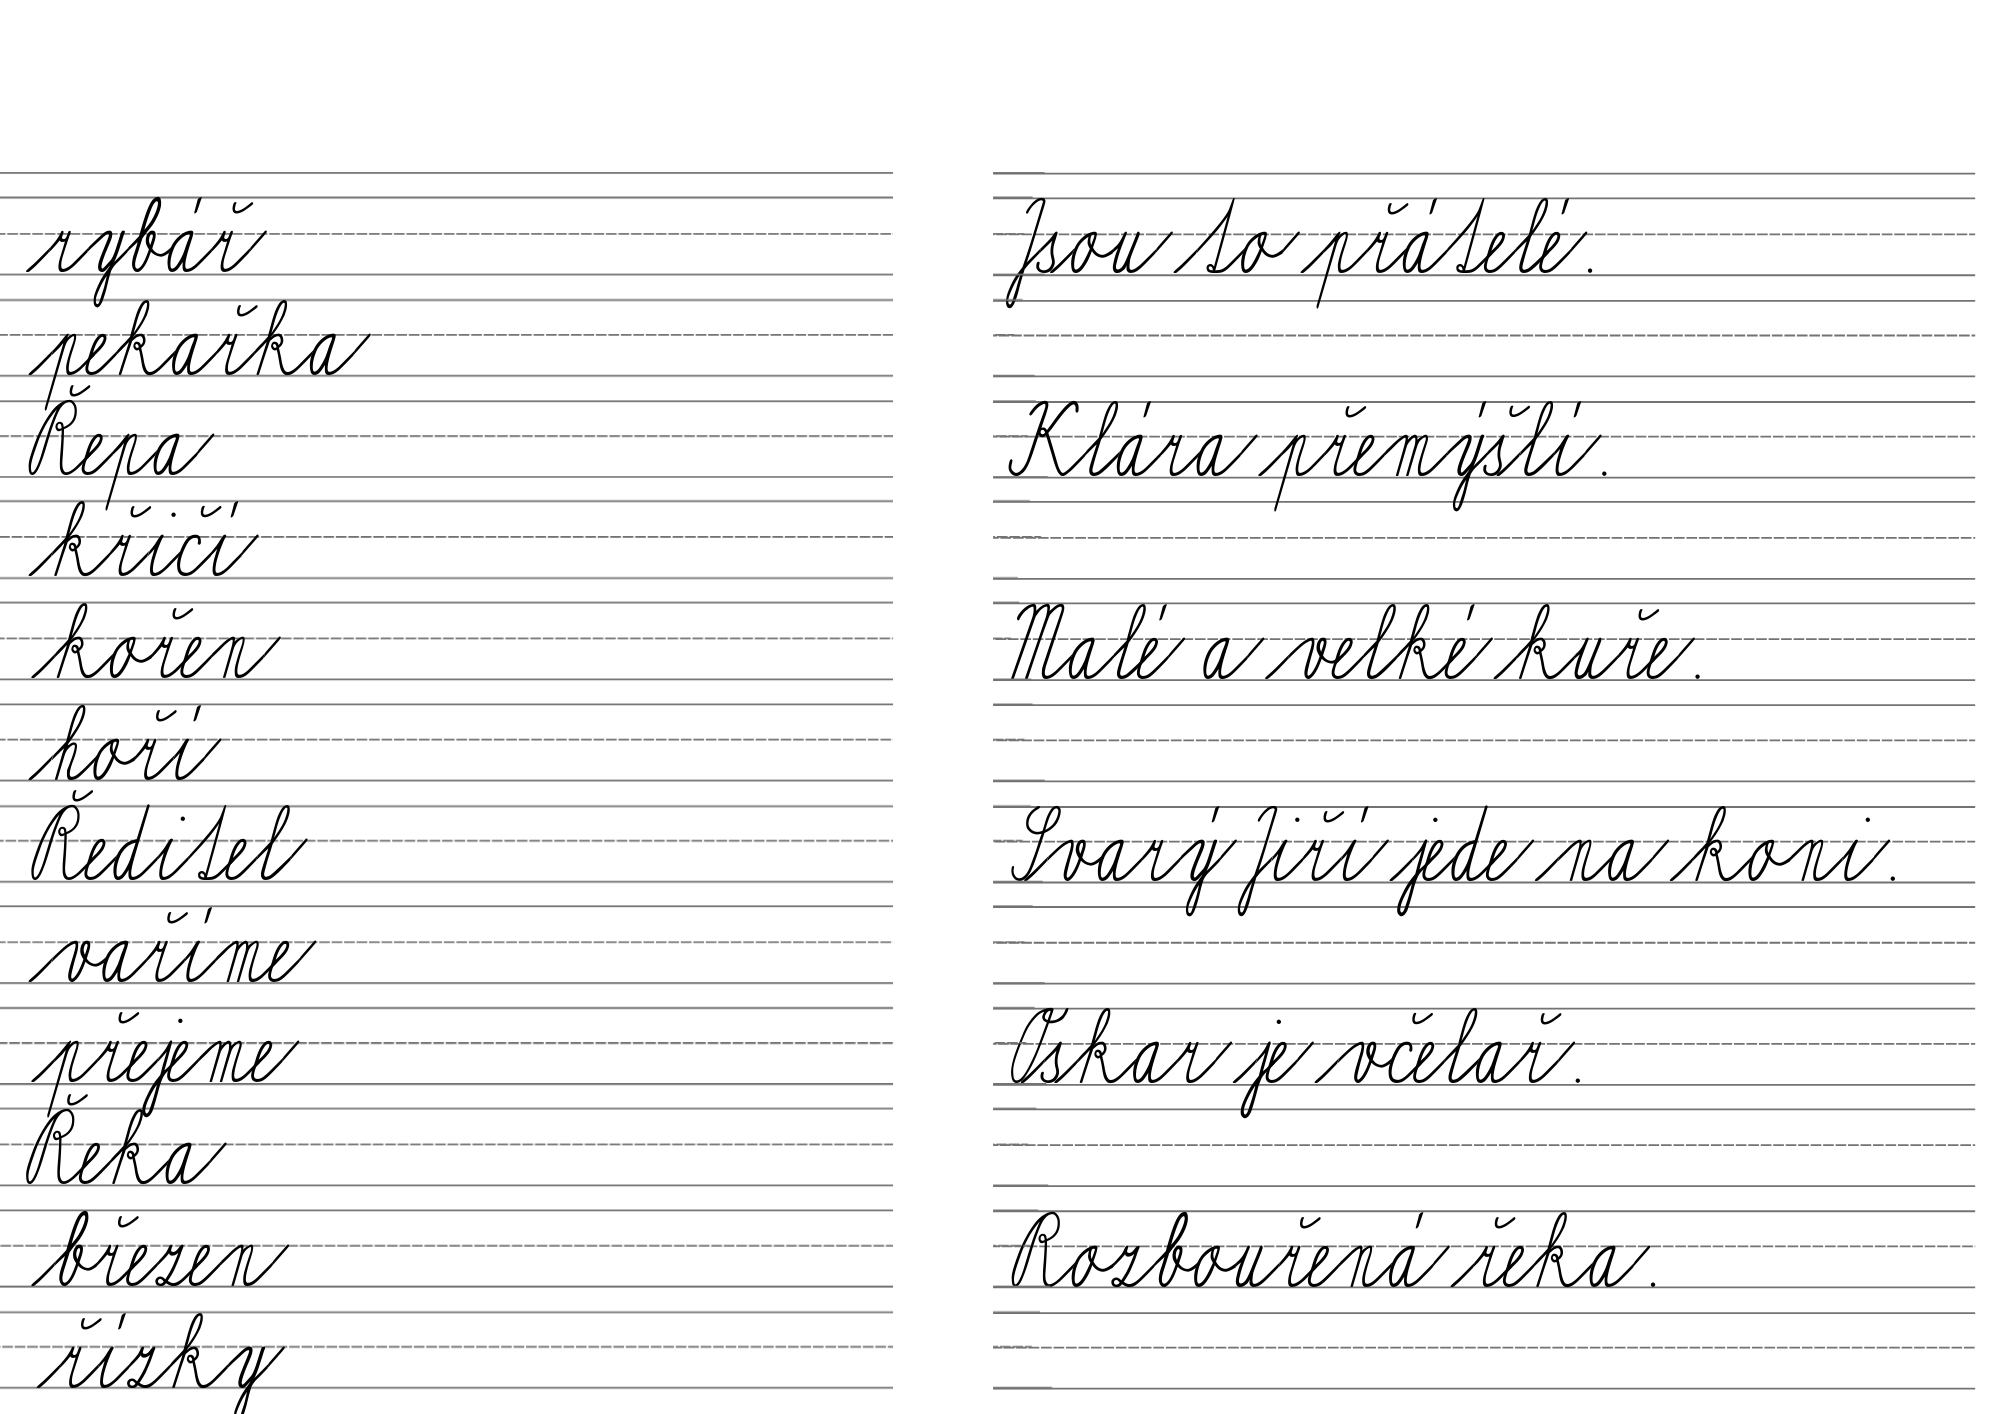 rybář
pekařka
Řepa
křičí
kořen
hoří
Ředitel
vaříme
přejeme
Řeka
březen
řízky
Jsou to přátelé.
Klára přemýšlí.
Malé a velké kuře.
Svarý Jiří jede na koni.
Oskar je včelař.
Rozbouřená řeka.